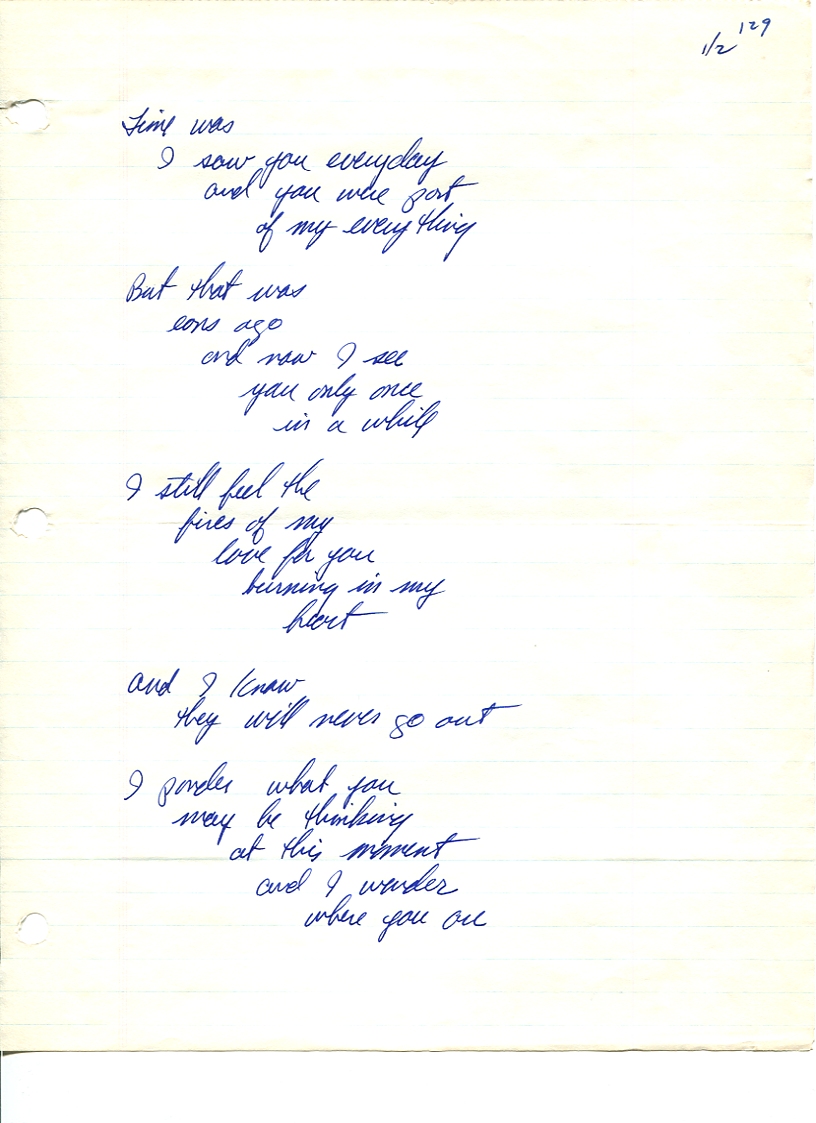 129
1/2
Time was
I saw you everyday
and you were part
of my everything
But that was
eons ago
and now I see
you only once
in a while
I still feel the
fires of my
love for you
burning in my
heart
and I know
they will never go out
I ponder what you
may be thinking
at this moment
and I wonder
where you are